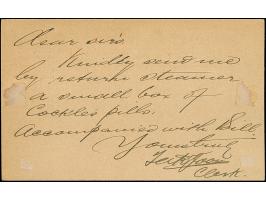 Dear sirs.
Kindly send me
by return steamer
a small box of
Cockle's pills.
Accompanied with Bill.
Yours truly
Clerk.